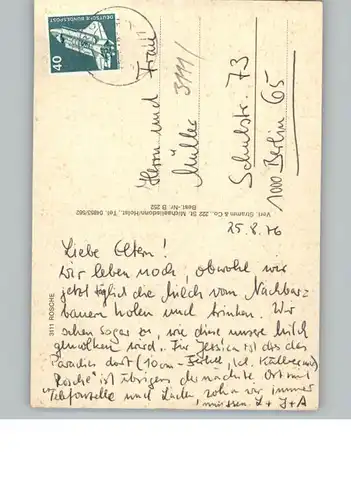 DEUTSCHE BUNDESPOST
40
Herrn und Frau
Müller 3111/
Schulstr. 73
1000 Berlin 65
Verl. Stramm & Co., 222 St. Michaelisdonn/Holst., Tel. 04853/562
Best.-Nr. B 252
3111 ROSCHE
25.8.76
Liebe Eltern!
Wir leben noch, obwohl wir
jetzt täglich die Milch vom Nachbar-
bauern holen und trinken. Wir
sehen sogar zu, wie diese Milch
gemolken wird. Für Jessica ist das das
Paradies dort (10 cm-
"Rosche" ist übrigens der nächste Ort mit
Telefonzelle und Laden, wohin wir immer
müssen. L + J + A